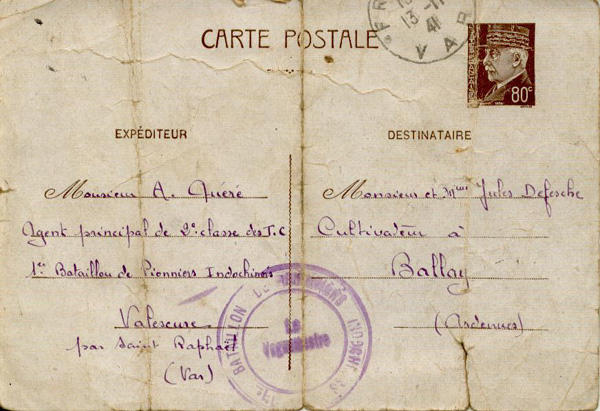 FR
13-11
41
VAR
CARTE POSTALE
80c
EXPÉDITEUR
Monsieur A. Queré
Agent principal de 2e classe des T.C
1er Bataillon de Pionniers Indochinois
Valescure
par Saint Raphaël
(Var)
DESTINATAIRE
Monsieur et Mme Jules Defesche
Cultivateur à
Ballay
(Ardennes)
BATAILLON DE PIONNIERS INDOCHINOIS
Le
Vaguemestre